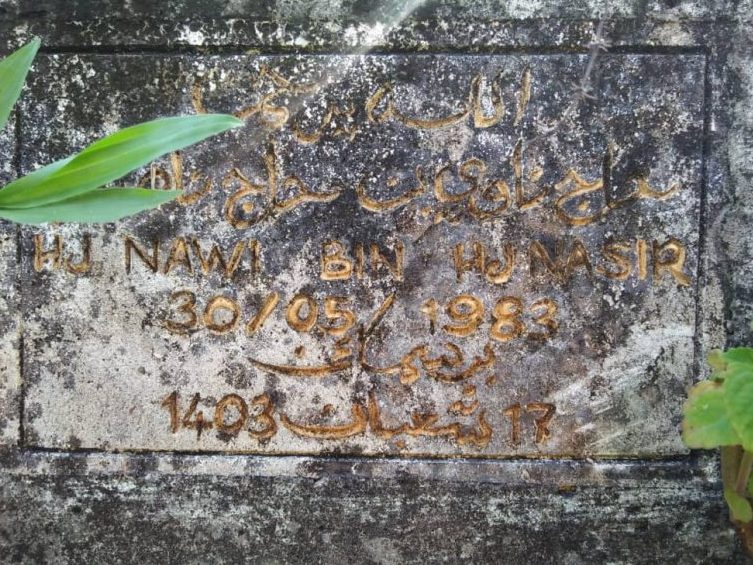 الله
حاج ناوي بن حاج
HJ NAWI BIN HJ NASIR
30/05/1983
17 شعبان 1403